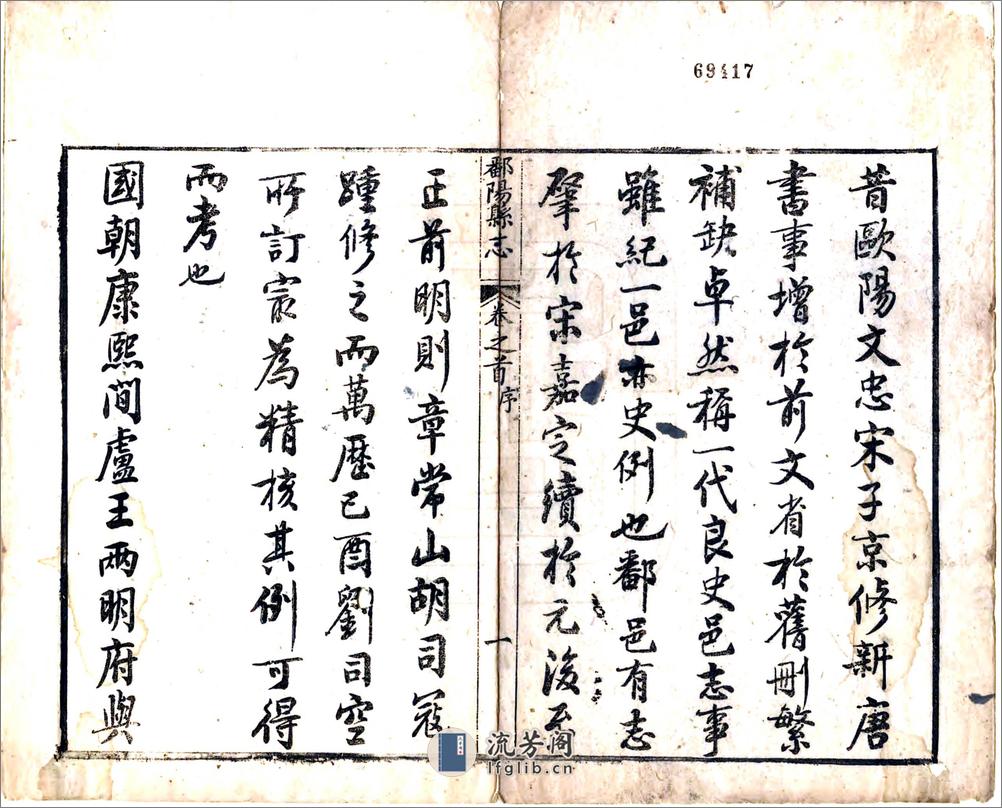 69417
昔歐陽文忠宋子京修新唐
書事增於前文省於舊刪繁
補缺卓然稱一代良史邑志事
雖紀一邑亦史例也鄱邑有志
肇於宋嘉定續於元後至
鄱陽縣志 卷之首 序 一
正前明則章常山胡司寇
踵修之而萬歷己酉劉司空
所訂最為精核其例可得
而考也
國朝康熙間盧王兩明府與
流芳阁
lfglib.cn